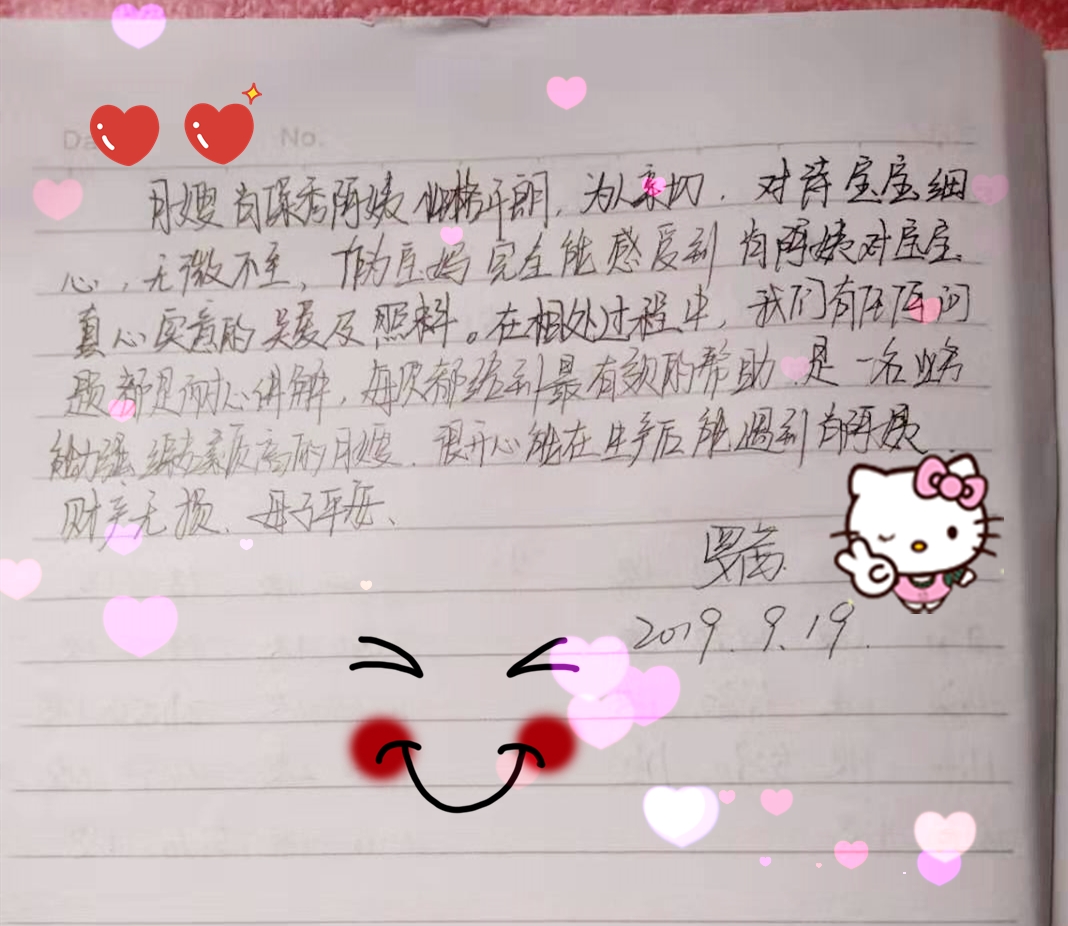 No.
月嫂肖琛秀阿姨性格开朗，为人亲切，对待宝宝细
心，无微不至，作为宝妈完全能感受到肖阿姨对宝宝
真心实意的关爱及照料。在相处过程中，我们有任何问
题都是耐心讲解，每次都给到最有效的帮助，是一名业务
能力强综合素质高的月嫂，很开心能在生产后能遇到肖阿姨
财产无损、母子平安、
2019.9.19.